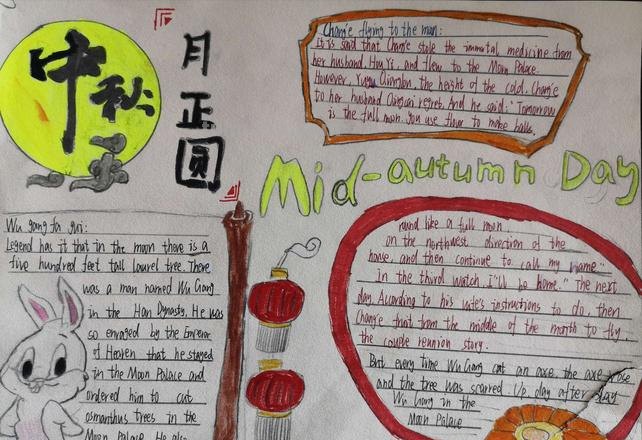 中秋
月正圆
Chang'e flying to the moon:
It is said that Chang'e stole the immortal medicine from
her husband, Hou Yi, and flew to the Moon Palace.
However, Yuqu Qionglou, the height of the cold. Chang'e
to her husband Qingsui regret. And he said: "Tomorrow
is the full moon. you use flour to make balls,
Mid-autumn Day
Wu gang fa gui:
Legend has it that in the moon there is a
five hundred feet tall laurel tree. There
was a man named Wu Gang
in the Han Dynasty. He was
so enraged by the Emperor
of Heaven that he stayed
in the Moon Palace and
ordered him to cut
osmanthus trees in the
Moon Palace. He also
round like a full moon
on the northwest direction of the
house, and then continue to call my name."
In the third watch, i"ll be home." The next
day. According to his wife's instructions to do, then
Chang'e that from the middle of the month to fly,
the couple reunion story.
But every time Wu Gang cut an axe, the axe rose
and the tree was scarred up. day after day
Wu Gang in the
Moon Palace